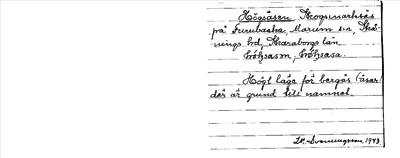 Högsåsen, Skogsmarksås
på Furubacka, Marum sn, Skå-
nings hd, Skaraborgs län
Högt läge för bergås (åsar)
där är grund till namnet.
Sven­ningsson, 1943